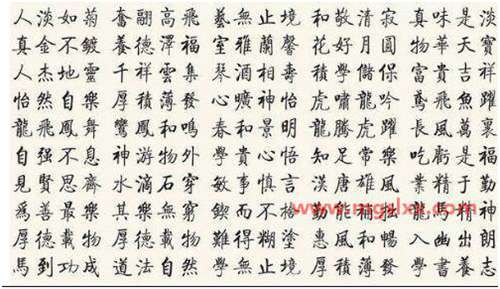 人淡如菊 奮翮高飛 藝無止境 和敬清寂 真味是淡
真金不鍍 養德澤福 室雅蘭馨 花好月圓 物華天寶
人杰地靈 千祥雲集 琴酒相壽 積學儲保 富貴吉祥
怡然自樂 厚積薄發 心曠神怡 虎嘯龍吟 鳶飛魚躍
龍飛鳳舞 鸞鳳和鳴 春和景明 龍騰虎躍 長風萬裏
自强不息 神游物外 學貴心悟 知足常樂 吃虧是福
見賢思齊 水滴石穿 敏事慎言 漢唐雄風 業精于勤
爲善最樂 其樂無窮 鍥而不 能補 神
厚德載物 厚德載物 難得糊塗 惠風和暢 入幽出朗
馬到功成 道法自然 學無止境 厚積薄發 學書養志